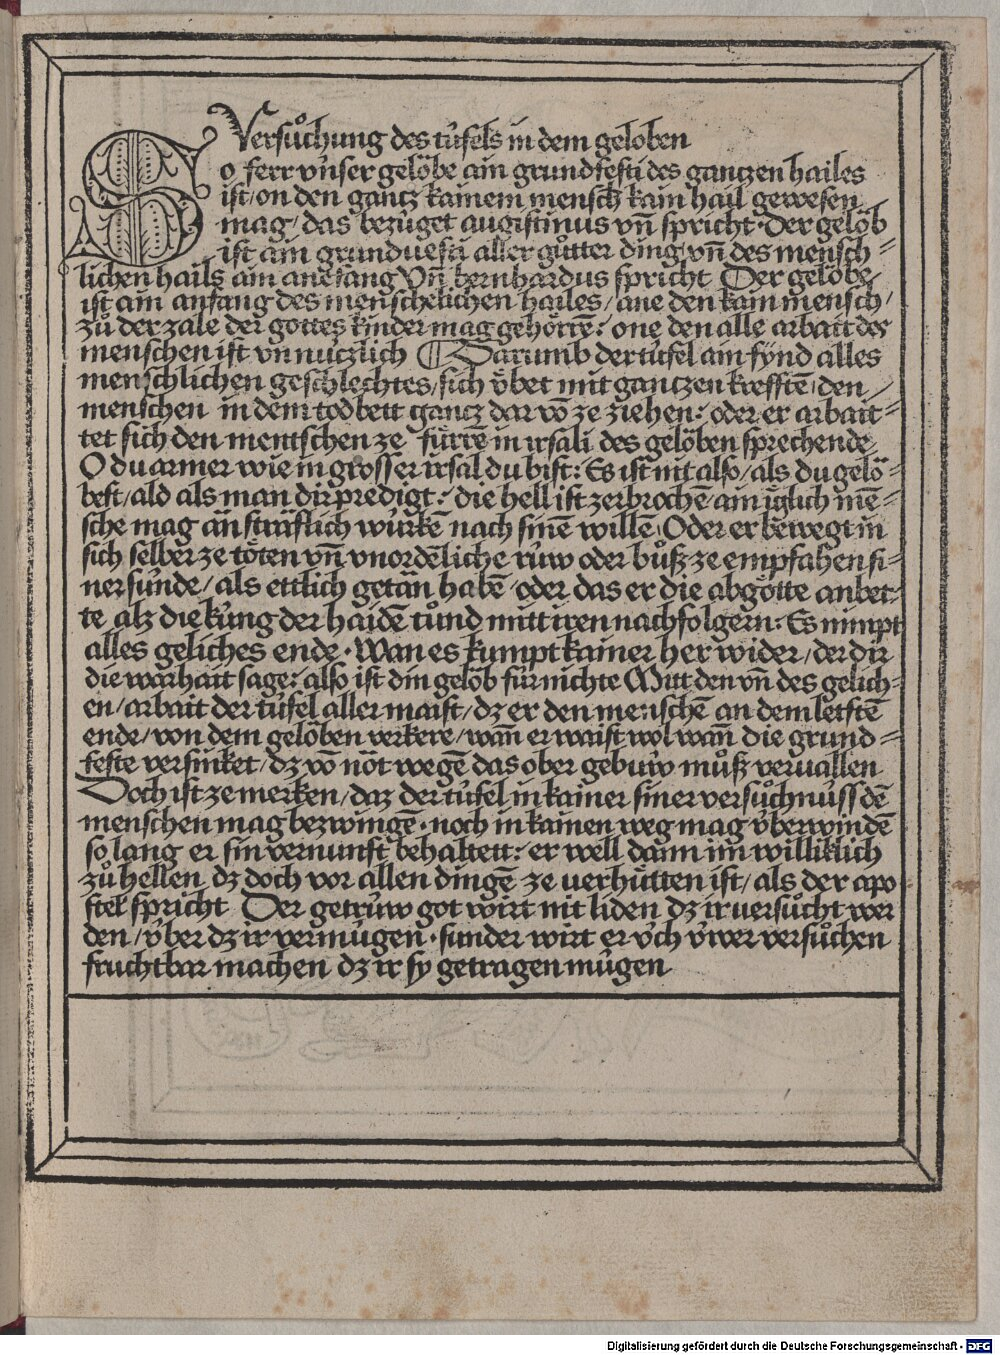 Versůchung des tüfels in dem geloben
So ferr vnser gelöbe ain grundfesti des gantzen hailes
ist / on den gantz kainem mensch kain hail gewesen
mag / das bezüget augistinus vn̄ spricht · Der gelöb
ist ain grundvesti aller gůtter ding vn̄ des mensch=
lichen hails ain anefang Vn̄ bernhardus spricht Der gelöbe
ist ain anfang des menschelichen hailes / ane den kain mensch /
zů der zale der gottes kinder mag gehörrē: one den alle arbait des
menschen ist vn nuczlich ¶ Darumb der tüfel ain fynd alles
menschlichen geschlechtes / sich vbet mit gantzen krefftē den
menschen in dem todbett gantz dar vō ze ziehen: oder er arbait=
tet sich den mentschen ze fürrē in irsali des gelöben sprechende
O du armer wie in grosser irsal du bist: Es ist nit also / als du gelö=
best / ald als man dir predigt: die hell ist zerbrochē ain iglich mē=
sche mag än sträflich würkē nach sinē willē Oder er bewegt in
sich selber ze töten vn̄ vnordēliche rüw oder bůsz ze empfahen si=
ner sünde / als ettlich getän habē oder das er die abgötte anbet=
te alz die küng der haidē tůnd mitt iren nachfolgern: Es nimpt
alles geliches ende · Wan es kumpt kainer her wider / der dir
die warhait sage: also ist din gelöb für nichte Mitt den vn̄ des gelich=
en / arbait der tüfel aller maist / dz er den menschē an dem letstē
ende / von dem gelöben verkere / wan̄ er waist wol wan̄ die grund=
feste versinket / dz vō nöt wegē das ober gebuw můsz veruallen
Doch ist ze merken / daz der tüfel in kainer siner versůchnüss dē
menschen mag bezwingē · noch in kainen weg mag vberwindē
so lang er sin vernunft behaltett: er well dann im williklich
zů hellen dz doch vor allen dingē ze verhütten ist / als der apo
stel spricht Der getrüw got wirt nit liden dz ir versůcht wer
den / vber dz ir vermügen · sunder wirt er v̈ch v̈wer versůchen
fruchtbar machen dz ir sy getragen mügen
Digitalisierung gefördert durch die Deutsche Forschungsgemeinschaft - DFG